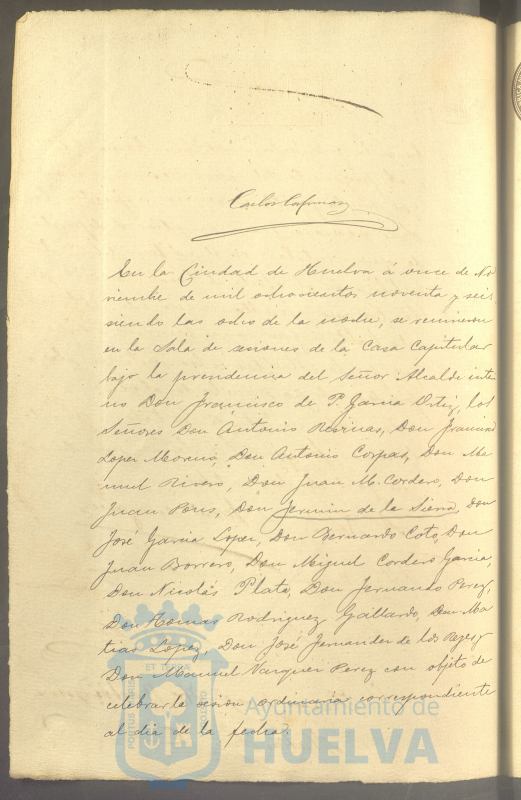 Carlos
En la Ciudad de Huelva á once de No
viembre de mil ochocientos noventa y seis
siendo las ocho de la noche, se reunieron
en la Sala de sesiones de la Casa Capitular
bajo la presidencia del Señor Alcalde inte
no Don Francisco de P. Garcia Ortiz, los
Señores Don Antonio Don Francisco
Lopez Moreno, Don Antonio Corpas, Don Ma
nuel Rivero, Don Juan M. Cordero, Don
Juan Pons, Don Fermin de la Sierra, Don
José Garcia Lopez, Don Bernardo Coto, Don
Juan Borrero, Don Miguel Cordero Garcia,
Don Nicolás Plata, Don Fernando Perez,
Don Tomas Rodriguez Gallardo, Don Ma
tias Lopez, Don José Fernandez de los Reyes y
Don Manuel Vazquez Perez con objeto de
celebrar la sesion ordinaria correspondiente
al dia de la fecha.
Ayuntamiento de
HUELVA